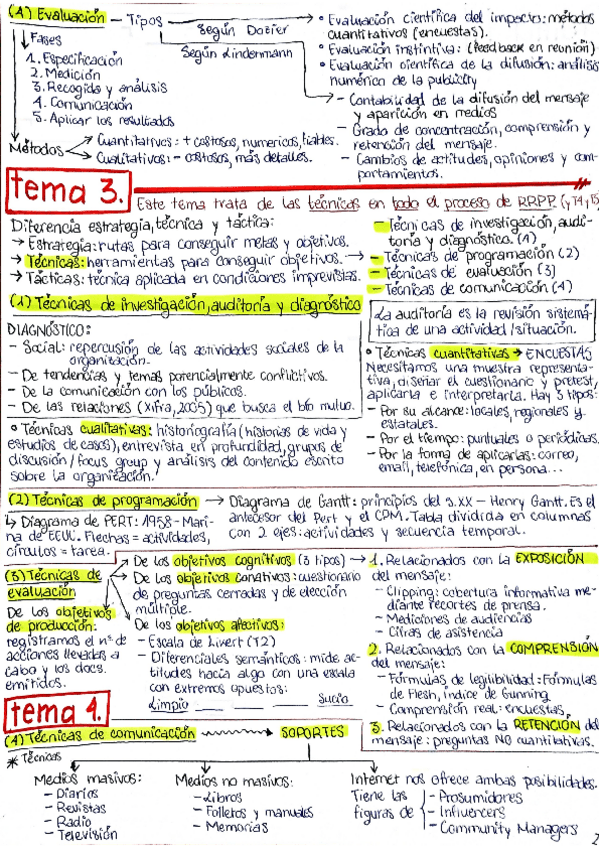 (4) Evaluación — Tipos
Según Dozier
• Evaluación científica del impacto: métodos
cuantitativos (encuestas).
• Evaluación instintiva: (feedback en reunión)
• Evaluación científica de la difusión: análisis
numérico de la publicity
Según Lindenmann
- Contabilidad de la difusión del mensaje
y aparición en medios
- Grado de concentración, comprensión y
retención del mensaje.
- Cambios de actitudes, opiniones y com-
portamientos.
Fases
1. Especificación
2. Medición
3. Recogida y análisis
4. Comunicación
5. Aplicar los resultados
Métodos
Cuantitativos: + costosos, numéricos, fiables.
Cualitativos: - costosos, más detalles.
tema 3.
Este tema trata de las técnicas en todo el proceso de RRPP. (y T4, T5)
Diferencia estrategia, técnica y táctica:
→ Estrategia: rutas para conseguir metas y objetivos.
→ Técnicas: herramientas para conseguir objetivos. →
→ Tácticas: técnica aplicada en condiciones imprevistas.
- Técnicas de investigación, audi-
toría y diagnóstico. (1)
- Técnicas de programación (2)
- Técnicas de evaluación (3)
- Técnicas de comunicación (4)
(1) Técnicas de investigación, auditoría y diagnóstico
La auditoría es la revisión sistemá-
tica de una actividad/situación.
DIAGNÓSTICO:
- Social: repercusión de las actividades sociales de la
organización.
- De tendencias y temas potencialmente conflictivos.
- De la comunicación con los públicos.
- De las relaciones (Xifra, 2005) que busca el bfo mutuo.
• Técnicas cuantitativas → ENCUESTAS
Necesitamos una muestra representa-
tiva, diseñar el cuestionario y pretest,
aplicarla e interpretarla. Hay 3 tipos:
- Por su alcance: locales, regionales y
estatales.
- Por el tiempo: puntuales o periódicas.
- Por la forma de aplicarlas: correo,
email, telefónica, en persona...
• Técnicas cualitativas: historiografía (historias de vida y
estudios de casos), entrevista en profundidad, grupos de
discusión / focus group y análisis del contenido escrito
sobre la organización.
(2) Técnicas de programación → Diagrama de Gantt: principios del s.XX — Henry Gantt. Es el
antecesor del Pert y el CPM. Tabla dividida en columnas
con 2 ejes: actividades y secuencia temporal.
↳ Diagrama de PERT: 1958 - Mari-
na de EEUU. Flechas = actividades,
círculos = tarea.
(3) Técnicas de
evaluación
De los objetivos
de producción:
registramos el nº de
acciones llevadas a
cabo y los docs.
emitidos.
De los objetivos cognitivos (3 tipos) →
De los objetivos conativos: cuestionario
de preguntas cerradas y de elección
múltiple.
De los objetivos afectivos:
- Escala de Likert (T2)
- Diferenciales semánticos: mide ac-
titudes hacia algo con una escala
con extremos opuestos:
Limpio ___ ___ ___ Sucio
1. Relacionados con la EXPOSICIÓN
del mensaje:
- Clipping: cobertura informativa me-
diante recortes de prensa.
- Mediciones de audiencias
- Cifras de asistencia
2. Relacionados con la COMPRENSIÓN
del mensaje:
- Fórmulas de legibilidad: Fórmulas
de Flesh, índice de Gunning
- Comprensión real: encuestas
3. Relacionados con la RETENCIÓN del
mensaje: preguntas NO cuantitativas.
tema 4.
(4) Técnicas de comunicación → SOPORTES
* Técnicas
Medios masivos:
- Diarios
- Revistas
- Radio
- Televisión
Medios no masivos:
- Libros
- Folletos y manuales
- Memorias
Internet nos ofrece ambas posibilidades.
Tiene las
figuras de
- Prosumidores
- Influencers
- Community Managers
2